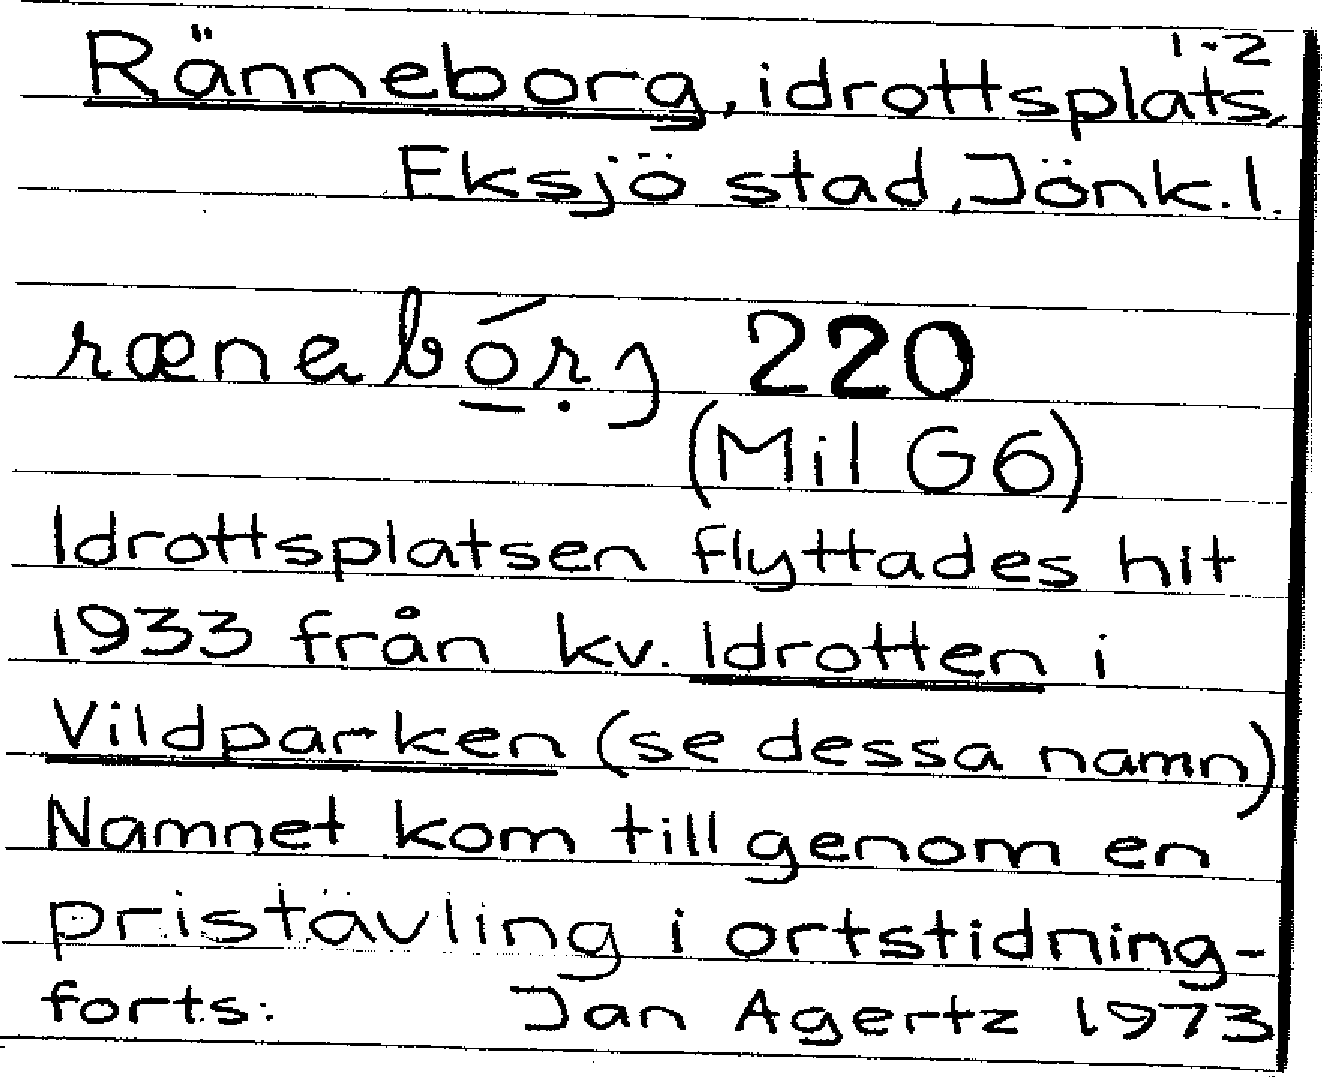 1-2
Ränneborg, idrottsplats,
Eksjö stad, Jönk. l.
rænabórj 220
(Mil G6)
Idrottsplatsen flyttades hit
1933 från kv. Idrotten i
Vildparken (se dessa namn)
Namnet kom till genom en
pristävling i ortstidning-
forts. Jan Agertz 1973